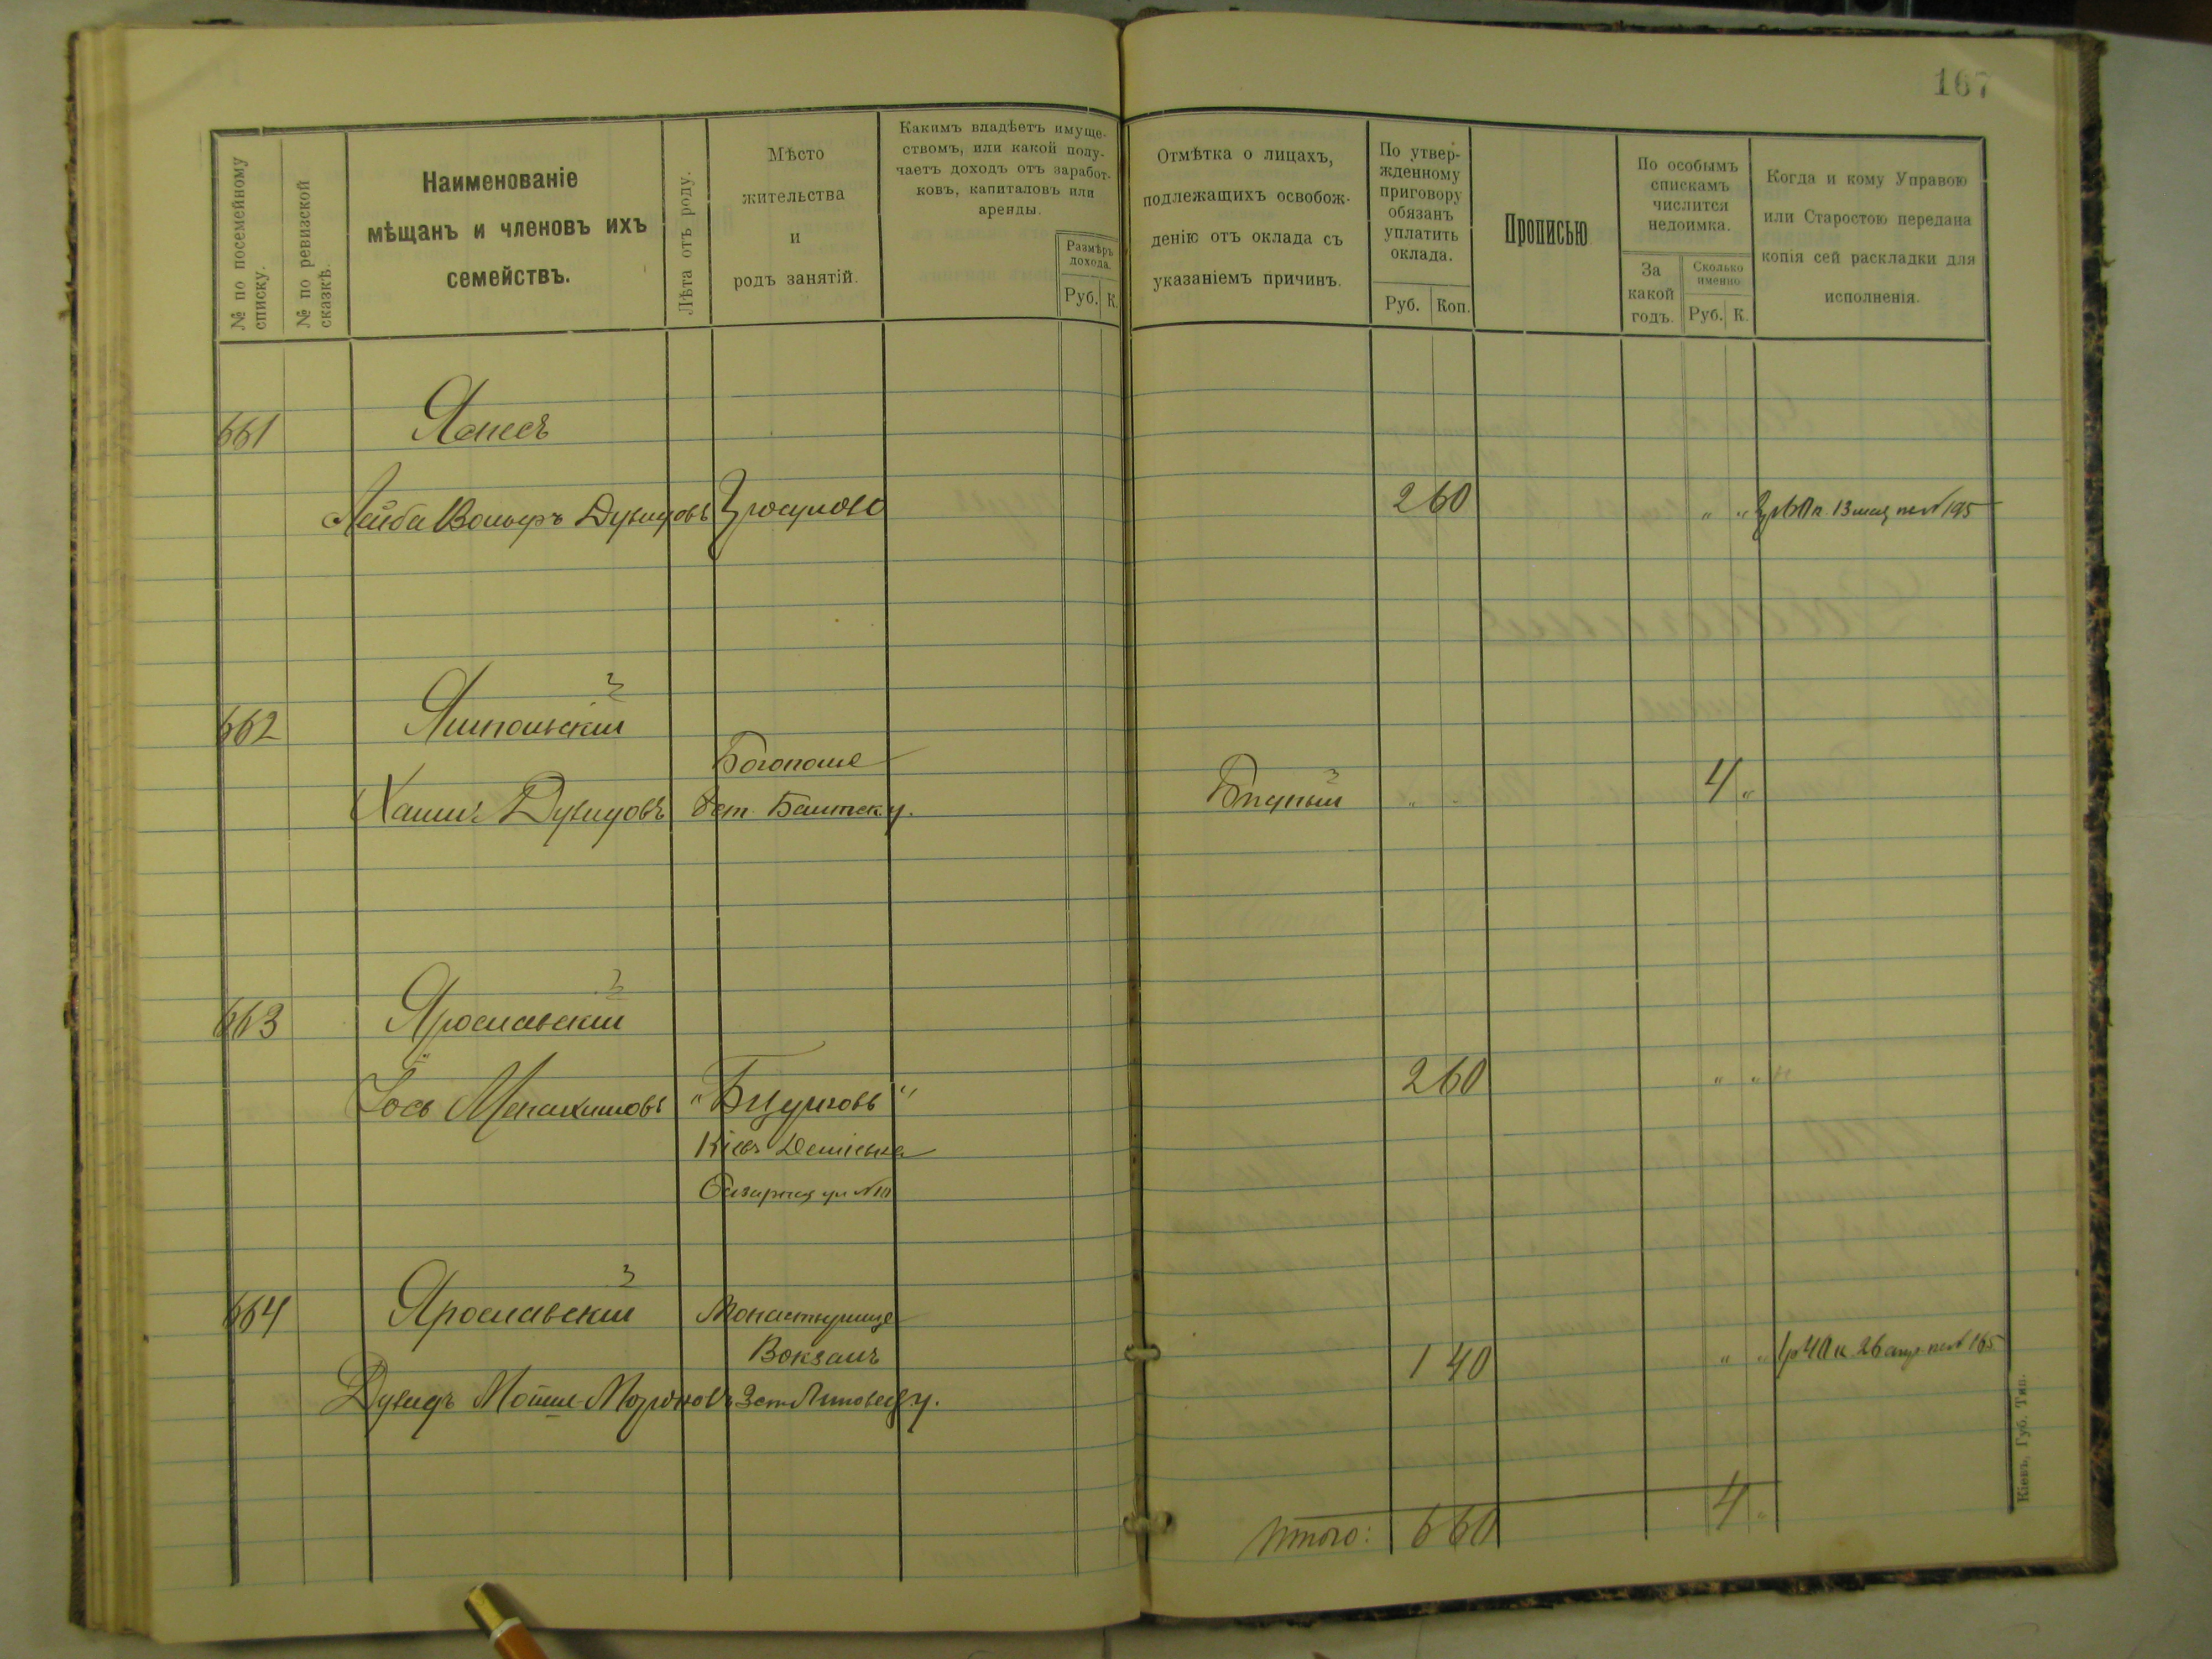 167
№ по посемейному списку.
№ по ревизской сказкѣ.
Наименованіе
мѣщанъ и членовъ ихъ
семействъ.
Лѣта отъ роду.
Мѣсто
жительства
и
родъ занятій.
Какимъ владѣетъ имуще-
ствомъ, или какой полу-
чаетъ доходъ отъ заработ-
ковъ, капиталовъ или
аренды.
Размѣръ
дохода.
Руб. К.
Отмѣтка о лицахъ,
подлежащихъ освобож-
денію отъ оклада съ
указаніемъ причинъ.
По утвер-
жденному
приговору
обязанъ
уплатить
оклада.
Руб. Коп.
Прописью
По особымъ
спискамъ
числится
недоимка.
За
какой
годъ.
Сколько
именно
Руб. К.
Когда и кому Управою
или Старостою передана
копія сей раскладки для
исполненія.
661
Лейба Вольфъ Дувидовъ 2 60 " " 2р 60 к. 13 мая № 195
662 Ямпольскій
Богополе
Хаимъ Дувидовъ Бѣдный " " 4 "
663 Ярославскій
Іось Менахимовъ 2 60 " "
Кіевъ Деміевка
Базарная ул №
664 Ярославскій Монастырище
Вокзалъ
1 40 " " 1р 40 к. 26 апр. № 165
Дувидъ Мошко
Итого: 6 60 4 "
Кіевъ, Губ. Тип.